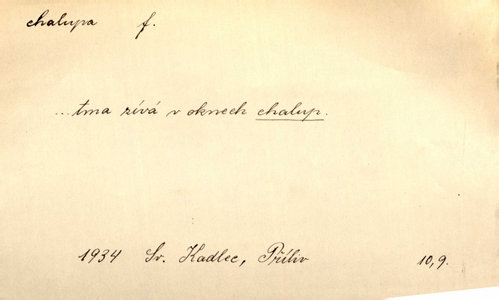 chalupa f.
...tma zívá v oknech chalup.
1934 Sv. Kadlec, Příliv 10,9.